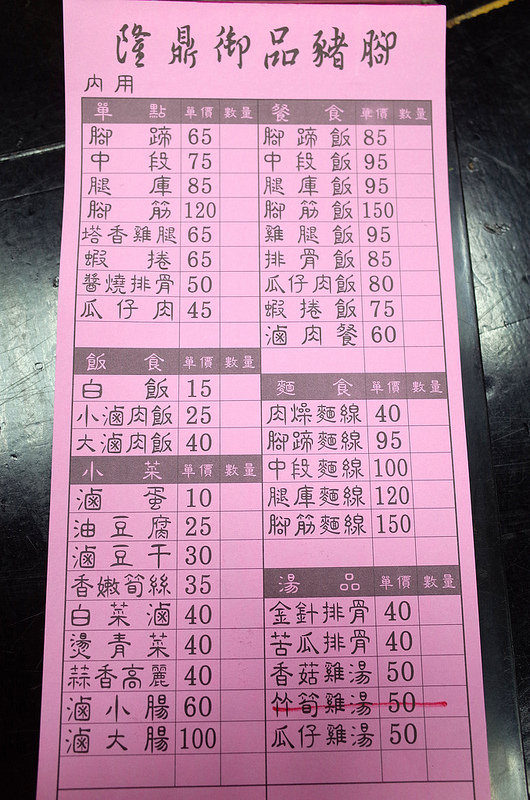 隆鼎御品豬腳
內用
單點 單價 數量
腳蹄 65
中段 75
腿庫 85
腳筋 120
塔香雞腿 65
蝦捲 65
醬燒排骨 50
瓜仔肉 45
飯食 單價 數量
白飯 15
小滷肉飯 25
大滷肉飯 40
小菜 單價 數量
滷蛋 10
油豆腐 25
滷豆干 30
香嫩筍絲 35
白菜滷 40
燙青菜 40
蒜香高麗 40
滷小腸 60
滷大腸 100
餐食 單價 數量
腳蹄飯 85
中段飯 95
腿庫飯 95
腳筋飯 150
雞腿飯 95
排骨飯 85
瓜仔肉飯 80
蝦捲飯 75
滷肉餐 60
麵食 單價 數量
肉燥麵線 40
腳蹄麵線 95
中段麵線 100
腿庫麵線 120
腳筋麵線 150
湯品 單價 數量
金針排骨 40
苦瓜排骨 40
香菇雞湯 50
竹筍雞湯 50
瓜仔雞湯 50